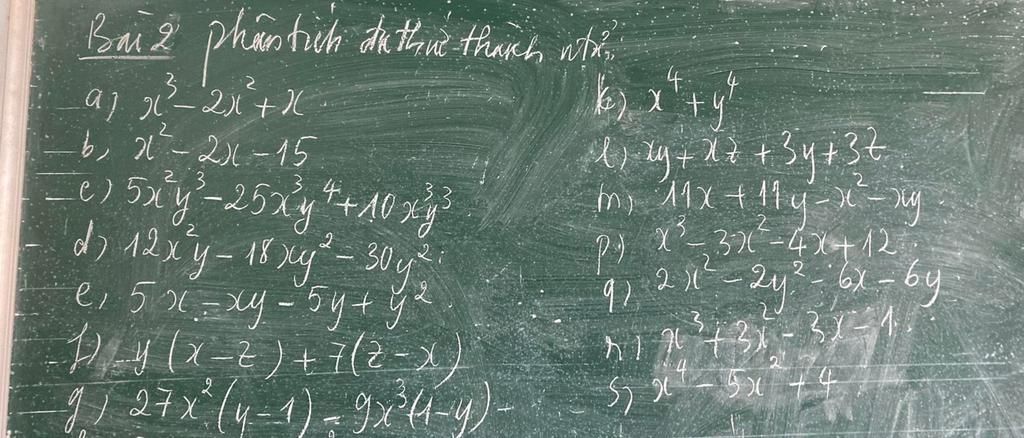 Bài 2 phân tích đa thức thành ntử:
a) x³ - 2x² + x
b, x² - 2x - 15
c) 5x²y³ - 25x³y⁴ + 10x³y³
d) 12x²y - 18xy² - 30y²
e, 5x - xy - 5y + y²
f) y(x - z) + 7(z - x)
g, 27x²(y - 1) - 9x³(1 - y)
k) x⁴ + y⁴
l) xy + xz + 3y + 3z
m, 11x + 11y - x² - xy
p) x³ - 3x² - 4x + 12
q) 2x² - 2y² - 6x - 6y
r) x³ + 3x² - 3x - 1
s, x⁴ - 5x² + 4